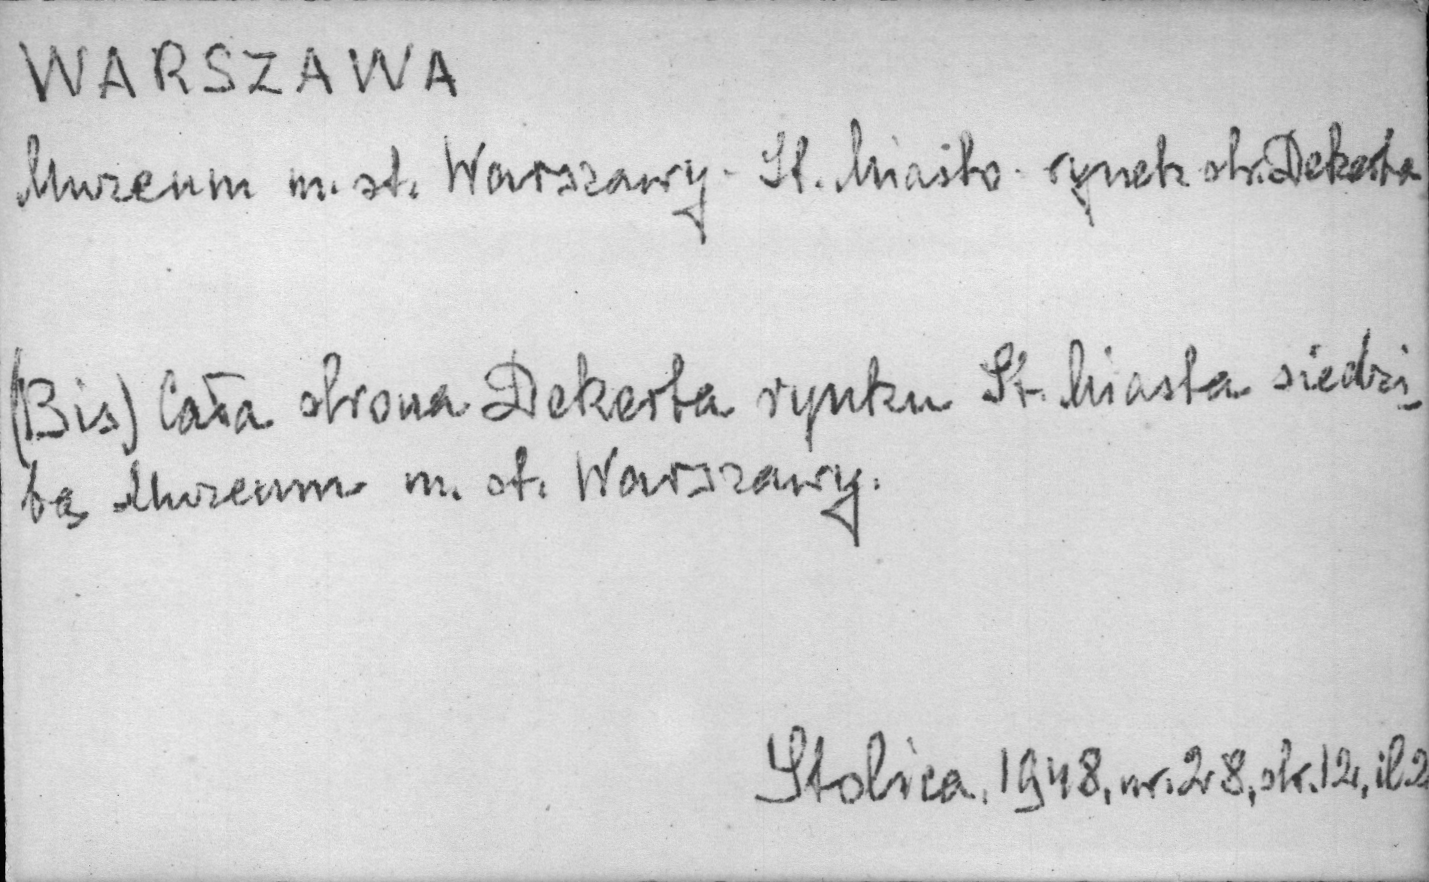 WARSZAWA
Muzeum m. st. Warszawy - St. Miasto - rynek str. Dekerta
(Bis) Cała strona Dekerta rynku St. Miasta siedzi-
bą Muzeum m. st. Warszawy.
Stolica, 1948, nr. 28, str. 12, il. 2